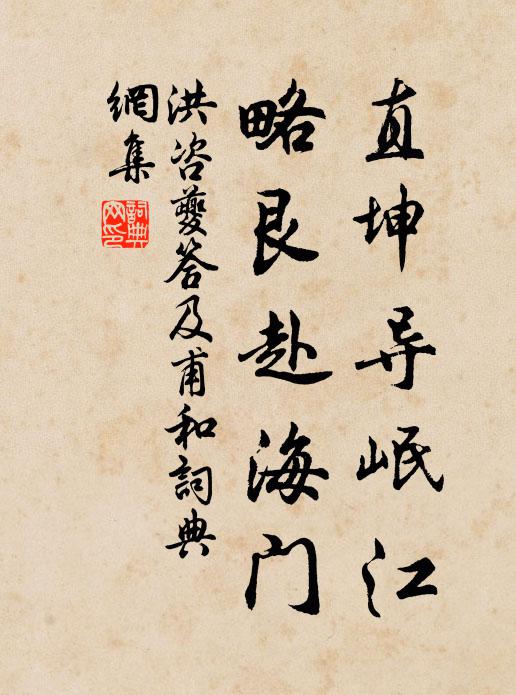 直坤导岷江
略艮赴海门
洪咨夔答及甫和詞典
網集
詞典
网印